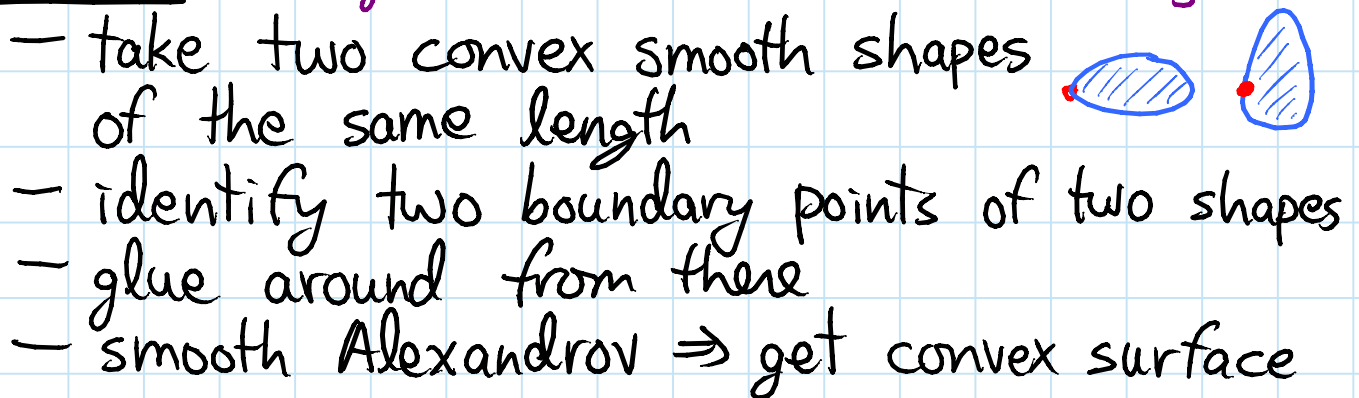 — take two convex smooth shapes
of the same length
— identify two boundary points of two shapes
— glue around from there
— smooth Alexandrov ⇒ get convex surface